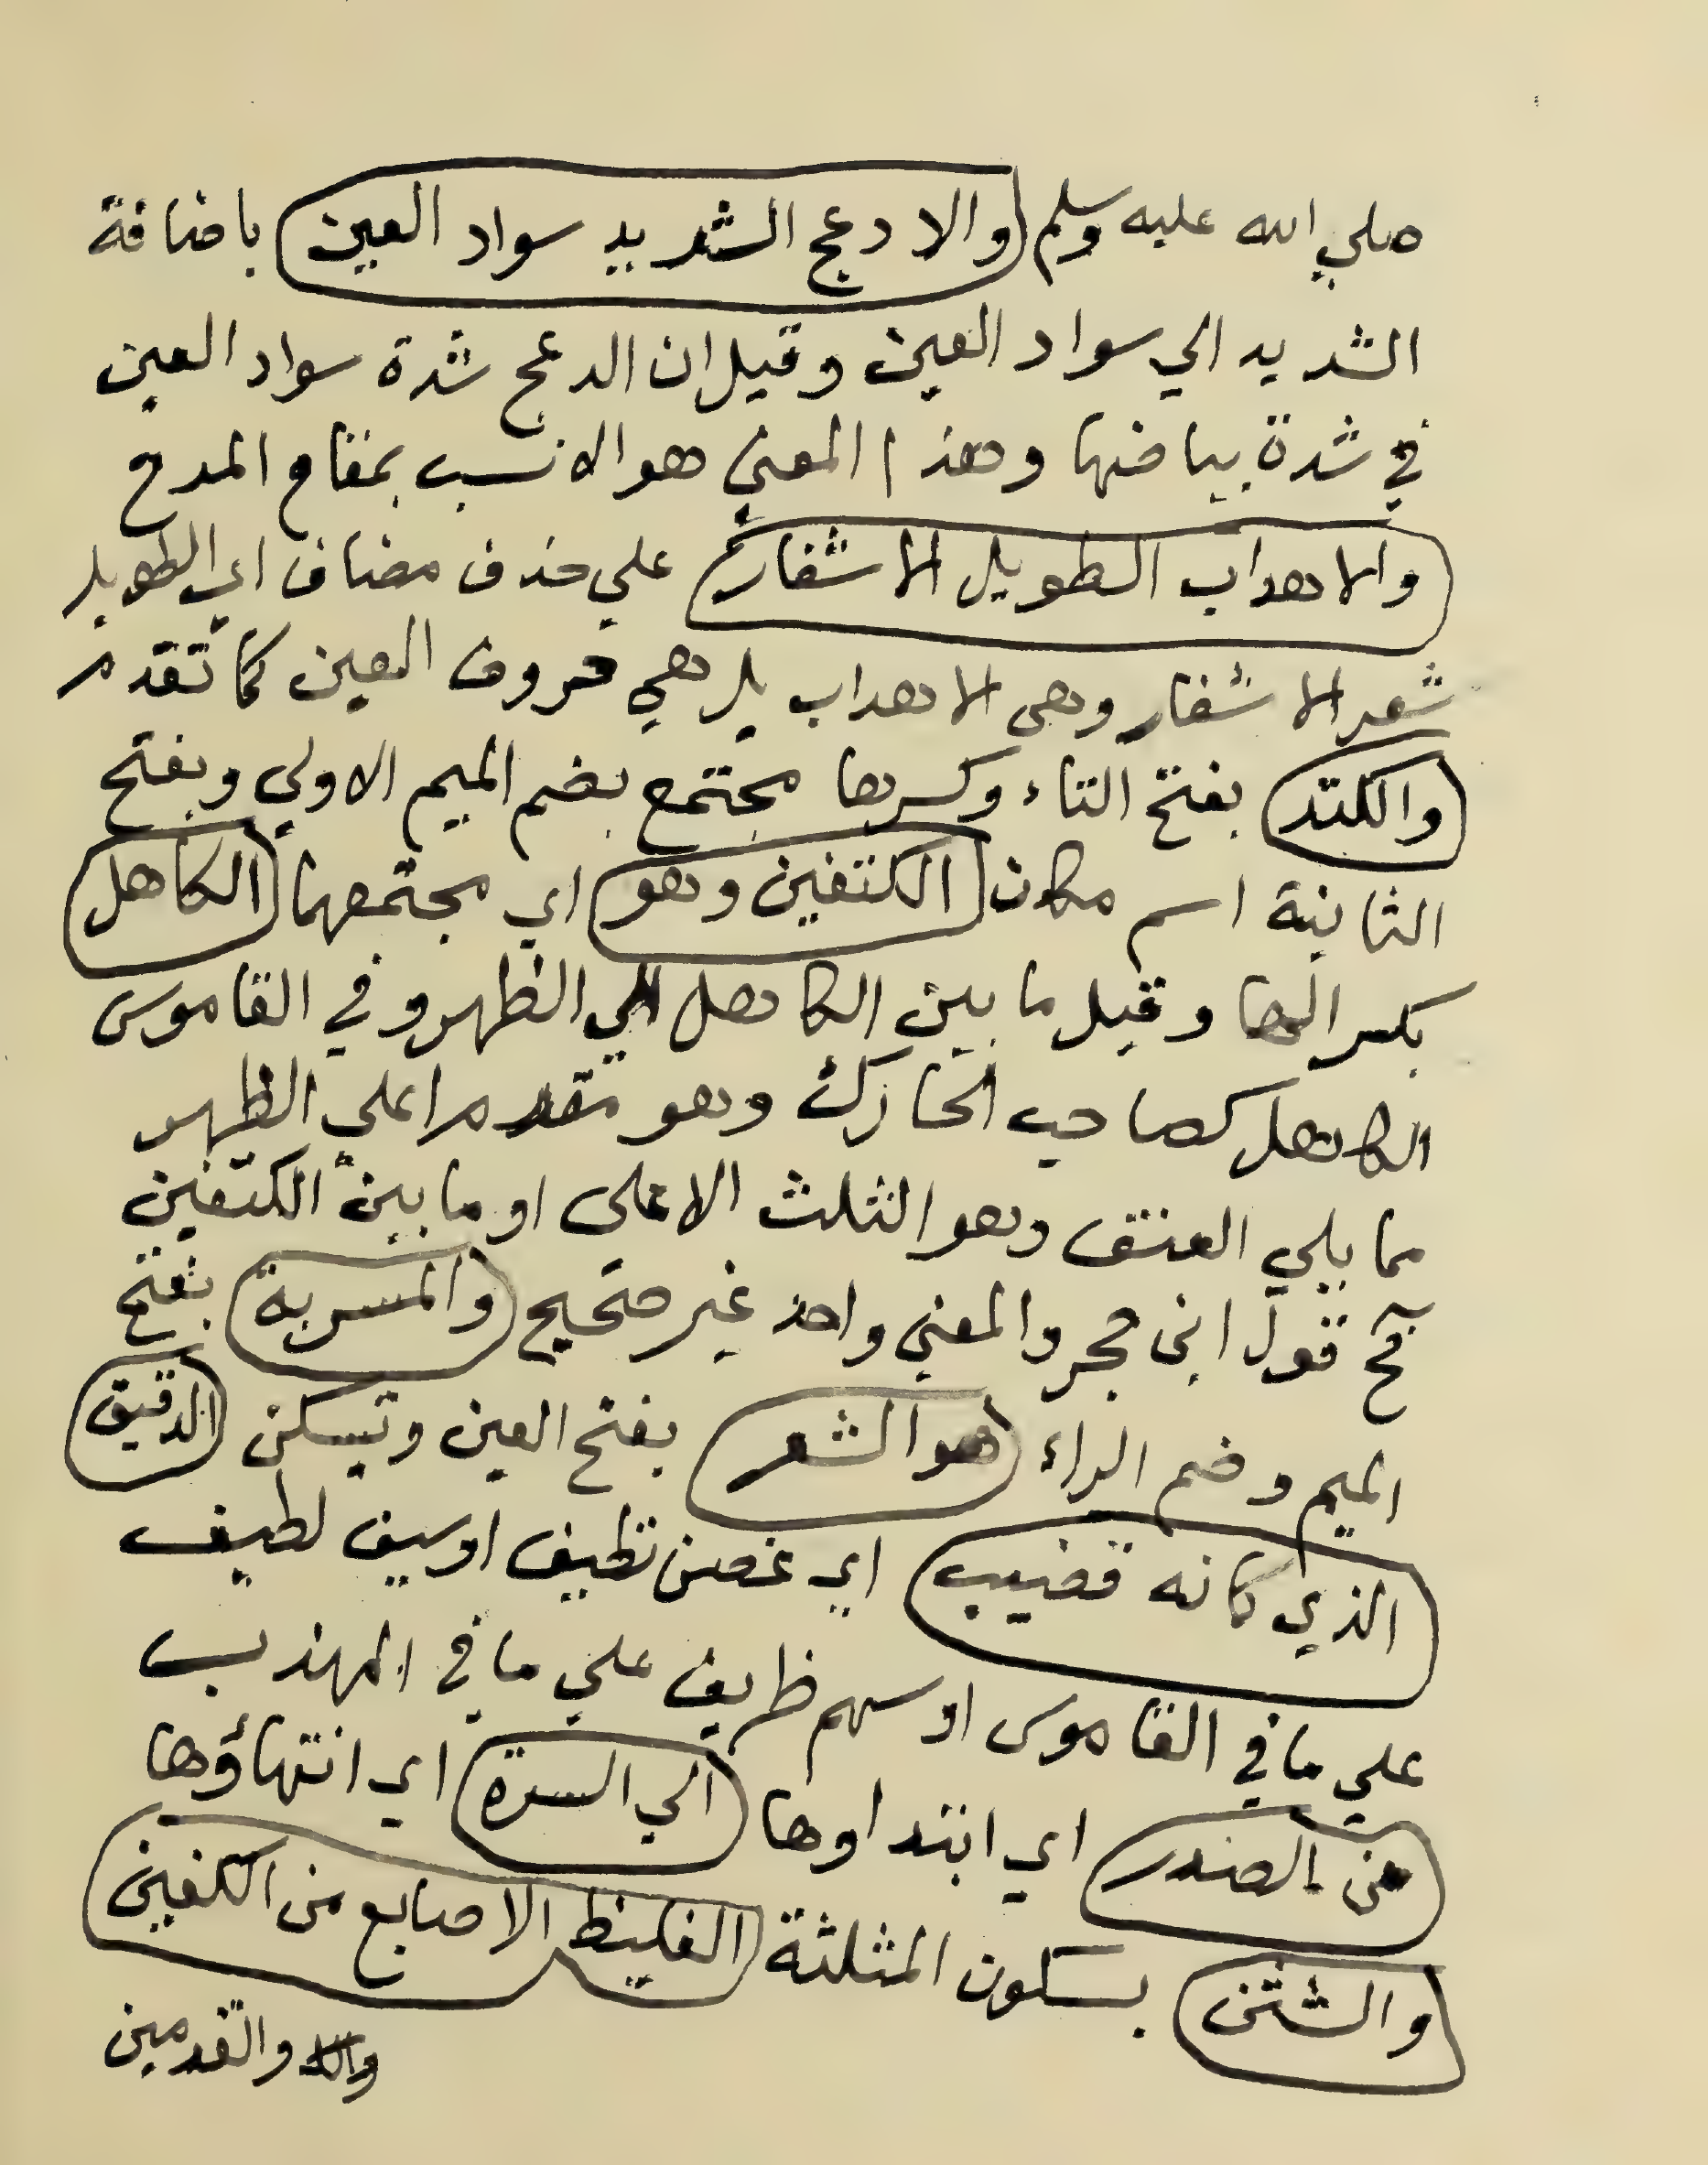 صلي الله عليه وسلم والادعج الشديد سواد العين باضافة
الشديد الي سواد العين وقيل ان الدعج شدة سواد العين
في شدة بياضها وهذا المعني هو الانسب بمقام المدح
والاهداب الطويل الاشفار علي حذف مضاف اي الطويل
شعر الاشفار وهي الاهداب بل هي حروف العين كما تقدم
والكتد بفتح التاء وكسرها مجتمع بضم الميم الاولي وبفتح
الثانية اسم مكان الكتفين وهو اي مجتمعهما الكاهل
بكسر الها وقيل ما بين الكاهل الي الظهر وفي القاموس
الكاهل كصاحب الحارك وهو مقدم اعلي الظهر
مما يلي العنق وهو الثلث الاعلى او ما بين الكتفين
فح قول ابن حجر والمعني واحد غير صحيح والمسربة بفتح
الميم وضم الراء هو الشعر بفتح العين وتسكن الدقيق
الذي كانه قضيب اي غصن نظيف او سيف لطيف
علي ما في القاموس او سهم ظريف علي ما في المهذب
من الصدر اي ابتداوها الي السرة اي انتهاؤها
والشثن بسكون المثلثة الغليظ الاصابع من الكفين
والقدمين